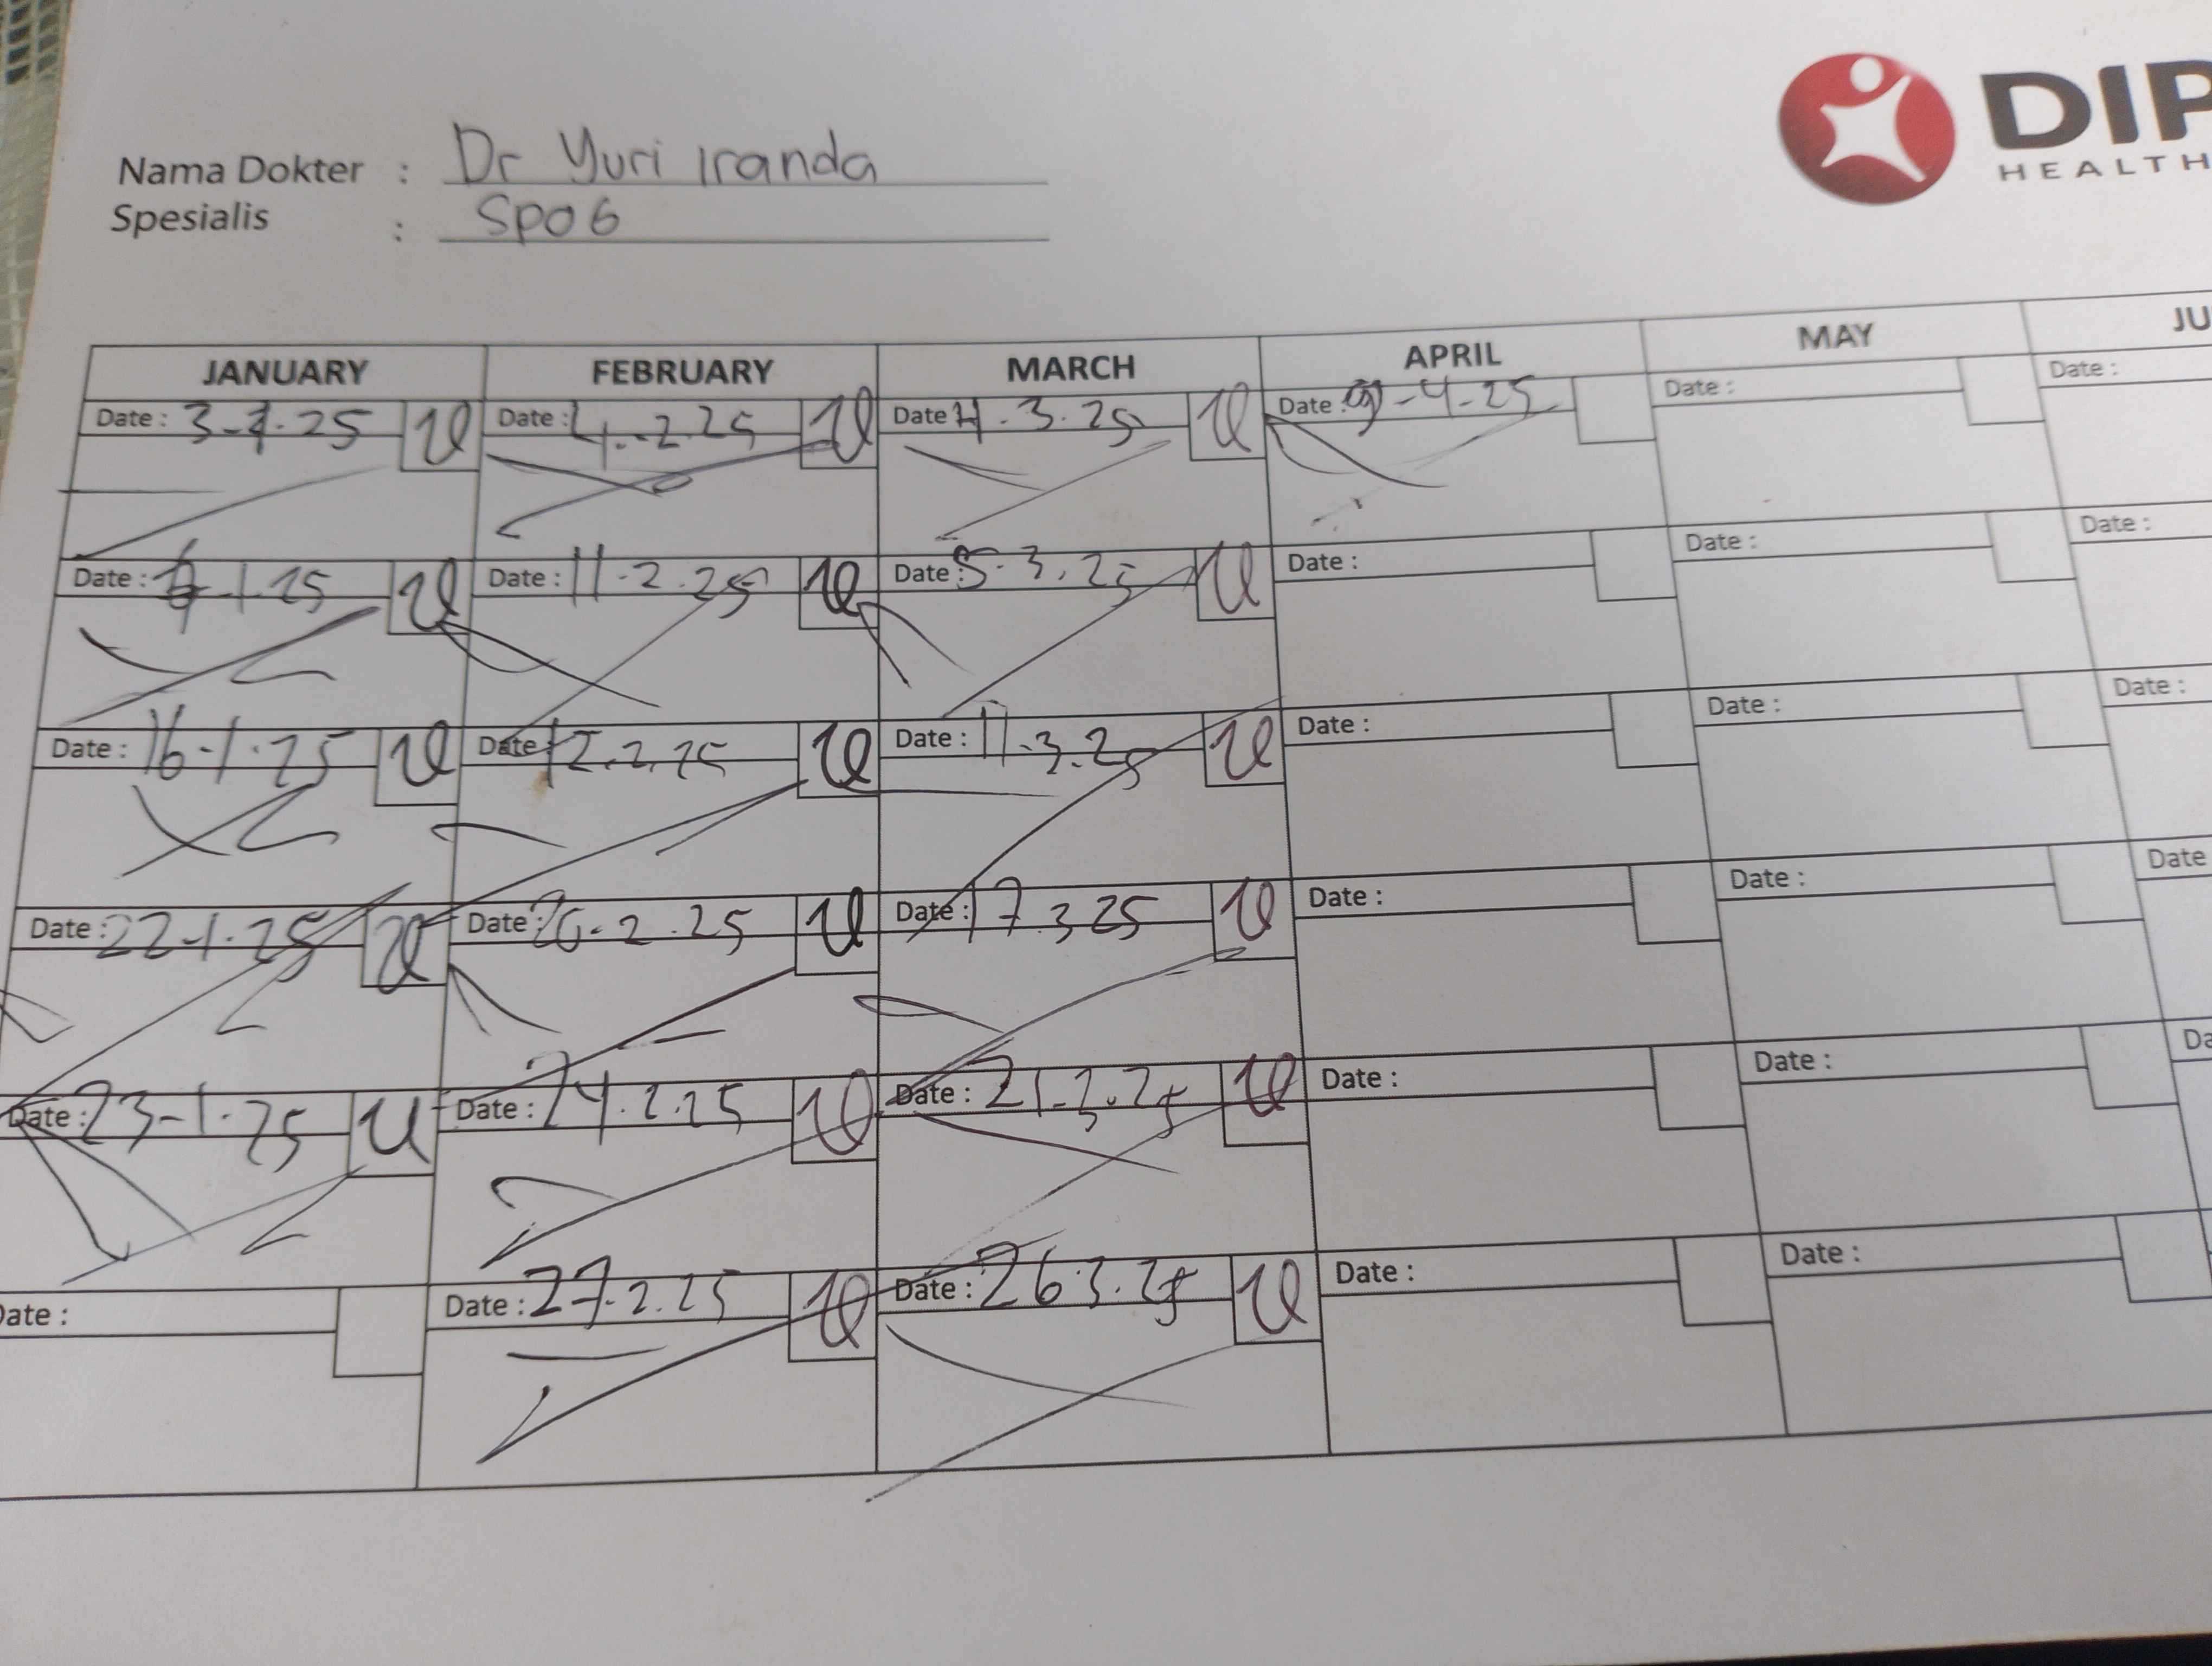 DIP
HEALTH
Nama Dokter : Dr Yuri Iranda
Spesialis : SpOG
JANUARY FEBRUARY MARCH APRIL MAY JU
Date : 3-1-25 Date : 4.-2.25 Date 4.3.25 Date -4-25 Date : Date :
Date : -1-25 Date : 11-2.25 Date : 5-3.25 Date : Date : Date :
Date : 16-1.25 Date 12.2.25 Date : 11.3.25 Date : Date : Date :
Date : 22-1.25 Date : -2.25 Date : 17.3 25 Date : Date : Date
Date : 23-1.25 Date : 24.2.25 Date : 21.3.25 Date : Date : Da
Date : Date : 27.2.25 Date : 26 3.25 Date : Date :